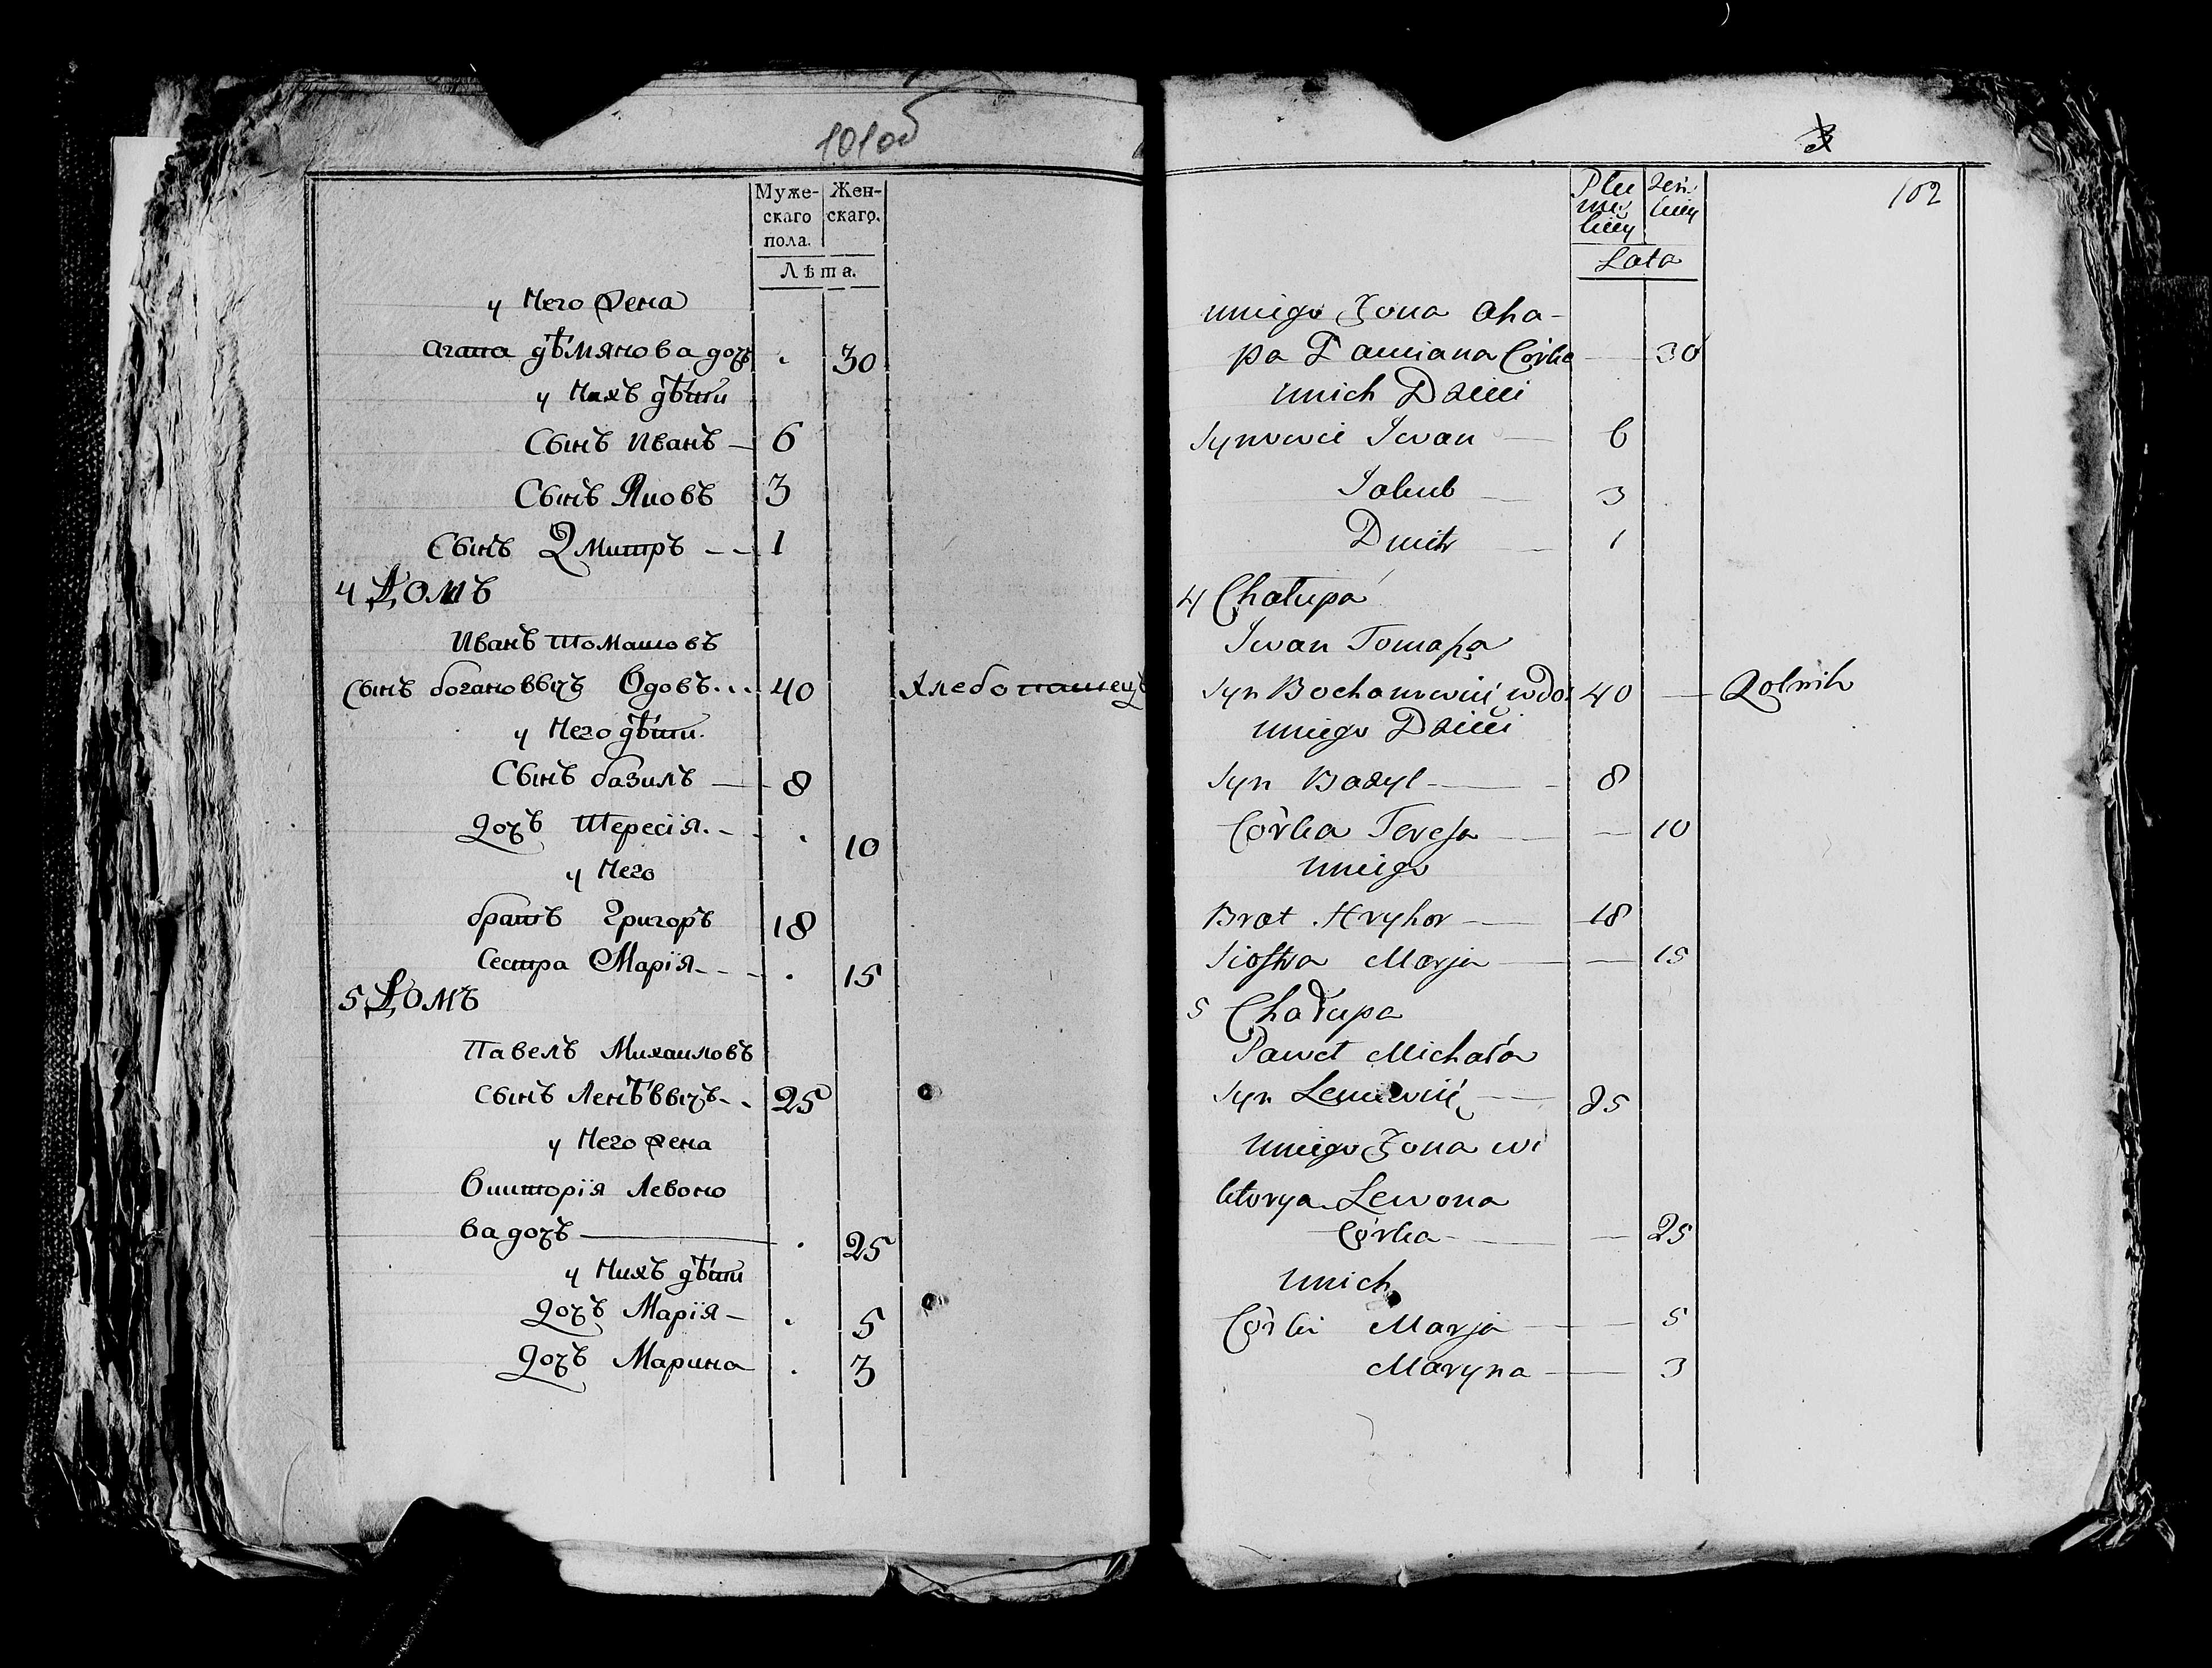 101об
Муже-
скаго
пола.
Жен-
скаго.
Лѣта.
у Него жена
Агапа дѣмянова дочь . 30
у Нихъ дѣти
Сынъ Иванъ — 6
Сынъ Яковъ 3
Сынъ Дмитръ -- 1
4 Домъ
Иванъ Томашовъ
Сынъ богановвичъ Вдовъ... 40 хлебопашецъ
у Него дѣти.
Сынъ базиль — 8
Дочь Тересія. - . 10
у Него
братъ Григоръ 18
Сестра Марія - - - . 15
5 Домъ
Павелъ Михаиловъ
Сынъ Ленѣввичъ - . 25
у Него жена
Викторія Левоно
ва дочь — . 25
у Нихъ дѣти
Дочь Марія - . 5
Дочь Марина . 3
3
102
Lata
uniego Żona Aha-
pa Damiana Córka — 30
unich Dzieci
Synowie Iwan — 6
Jakub — 3
Dmitr — 1
4 Chałupa
Iwan Tomasza
Syn Bochanowicz, wdo: 40 — Rolnik
uniego Dzieci
Syn Bazyl — 8
Córka Teresa — — 10
uniego
Brat Hryhor — 18
Siostra Marja — — 15
5 Chałupa
Paweł Michała
Syn Leniewicz — 25
uniego Żona Wi
ktorya Lewona
Córka — — 25
unich
Córki Marja — — 5
Maryna — — 3